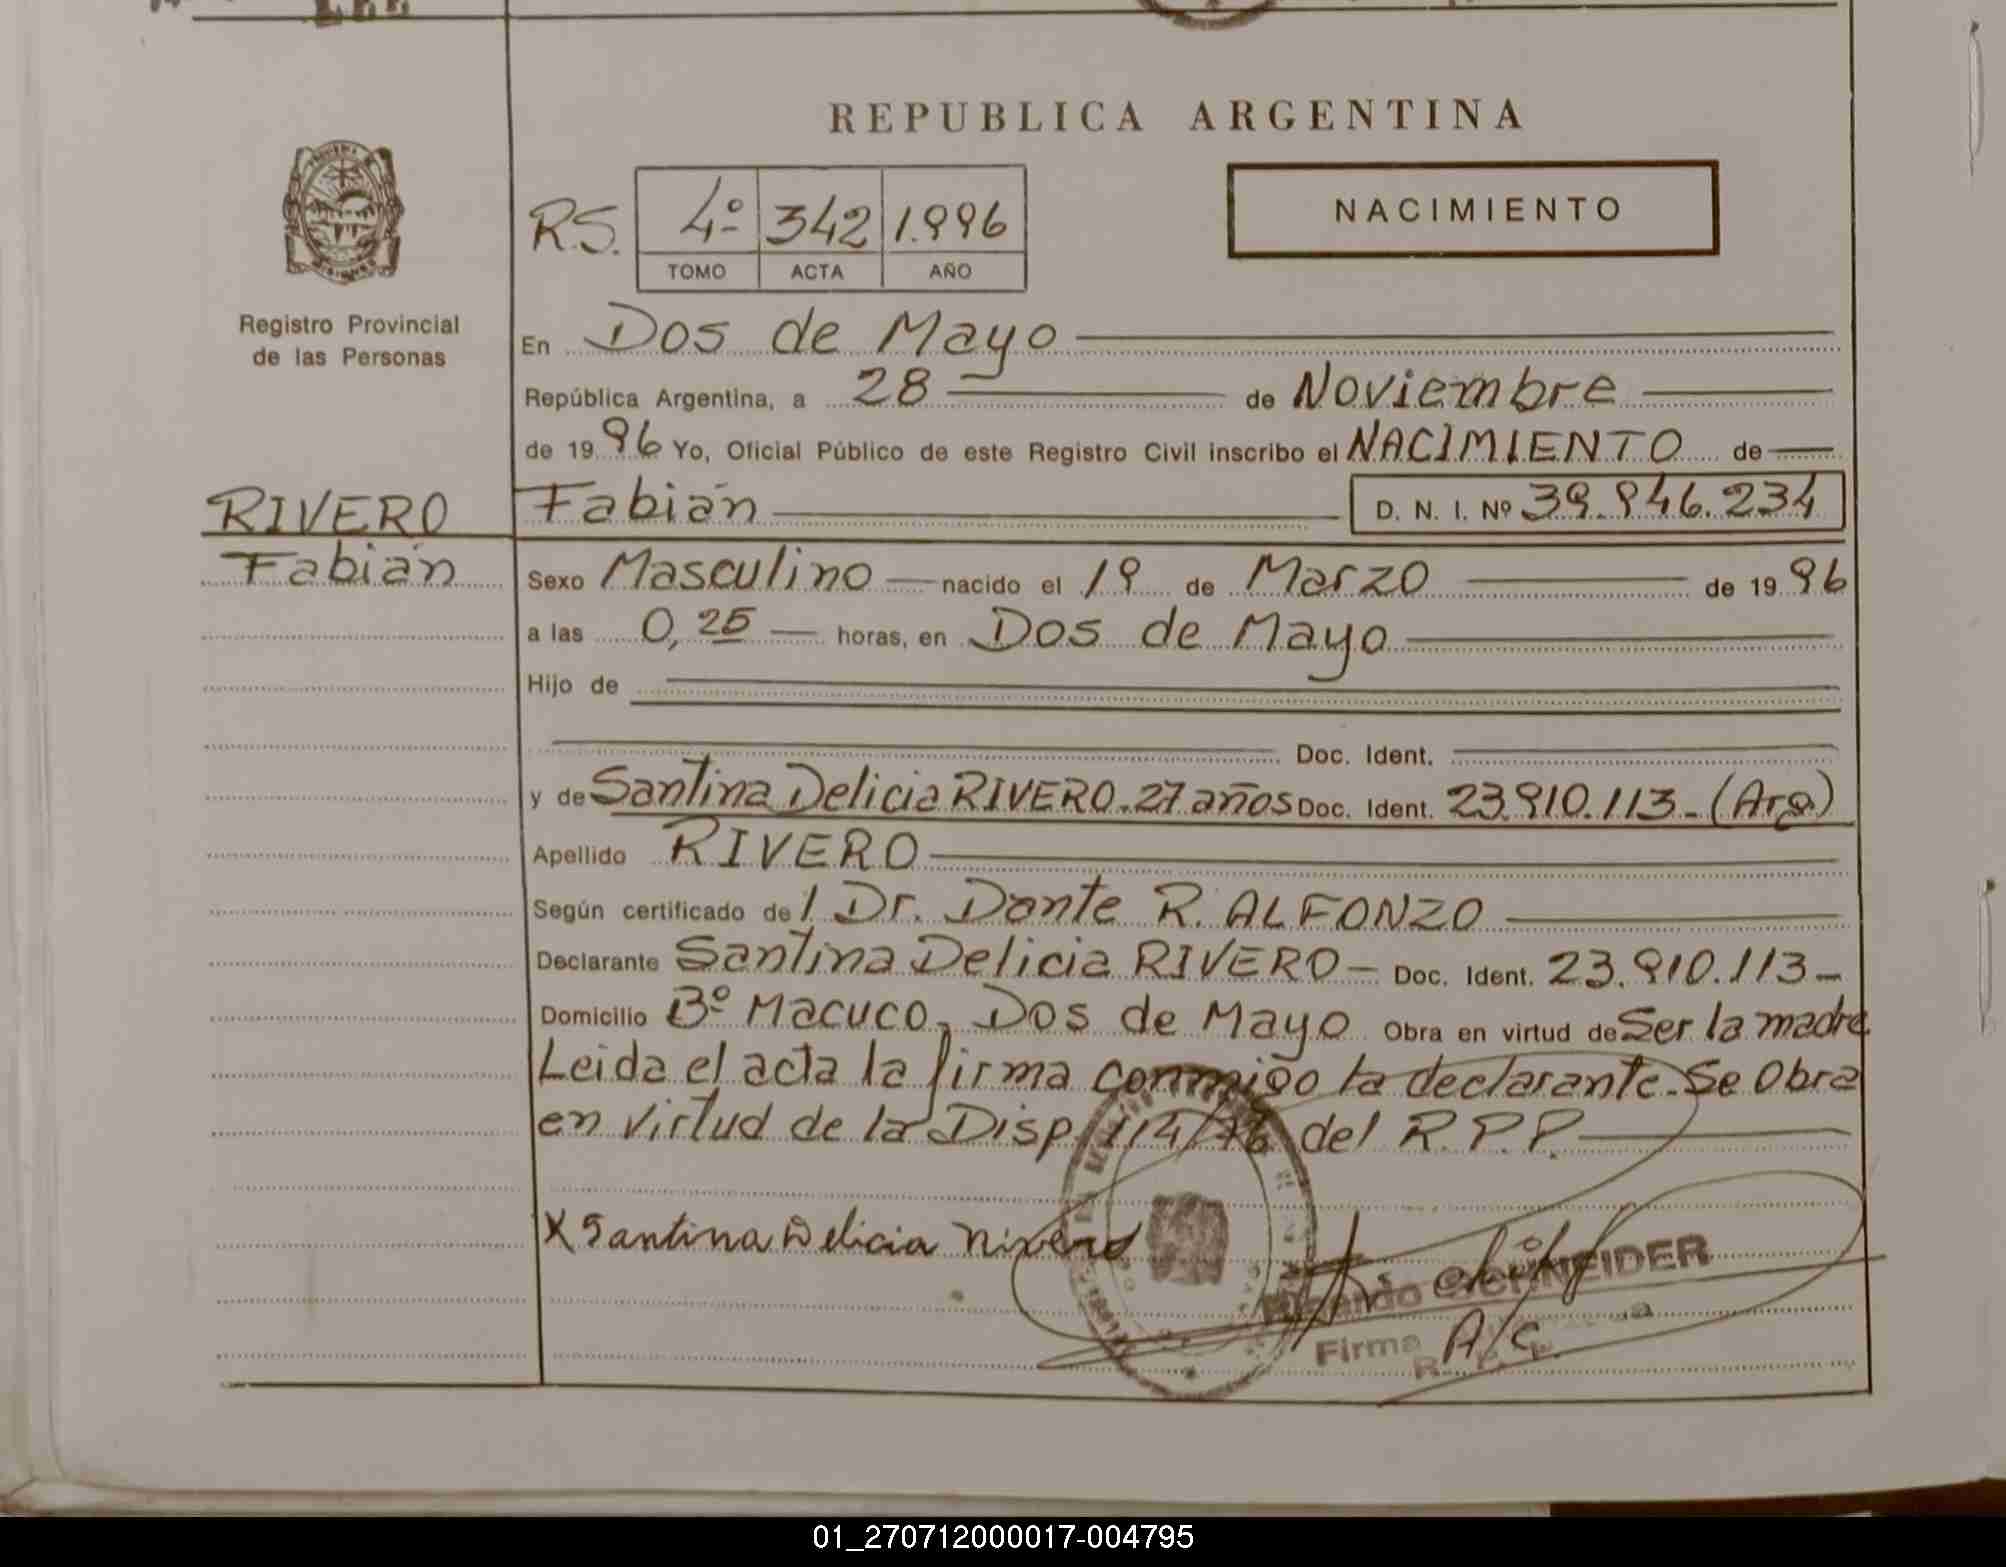 REPUBLICA ARGENTINA
NACIMIENTO
R.S. 4º 342 1.996
TOMO ACTA AÑO
Registro Provincial
de las Personas
En Dos de Mayo
República Argentina, a 28 de Noviembre
de 19 96 Yo, Oficial Público de este Registro Civil inscribo el NACIMIENTO de
RIVERO
Fabián
Fabián D. N. I. Nº 39.946.234
Sexo Masculino nacido el 19 de Marzo de 19 96
a las 0,25 horas, en Dos de Mayo
Hijo de
Doc. Ident.
y de Santina Delicia RIVERO. 27 años Doc. Ident. 23.910.113.- (Arg)
Apellido RIVERO
Según certificado de l. Dr. Dante R. ALFONZO
Declarante Santina Delicia RIVERO - Doc. Ident. 23.910.113-
Domicilio Bº Macuco, Dos de Mayo Obra en virtud de Ser la madre
Leida el acta la firma conmigo la declarante. Se Obra
en virtud de la Disp. 114/76 del R.P.P.
X Santina Delicia Rivero
SCHNEIDER
Firma A/C
01_270712000017-004795